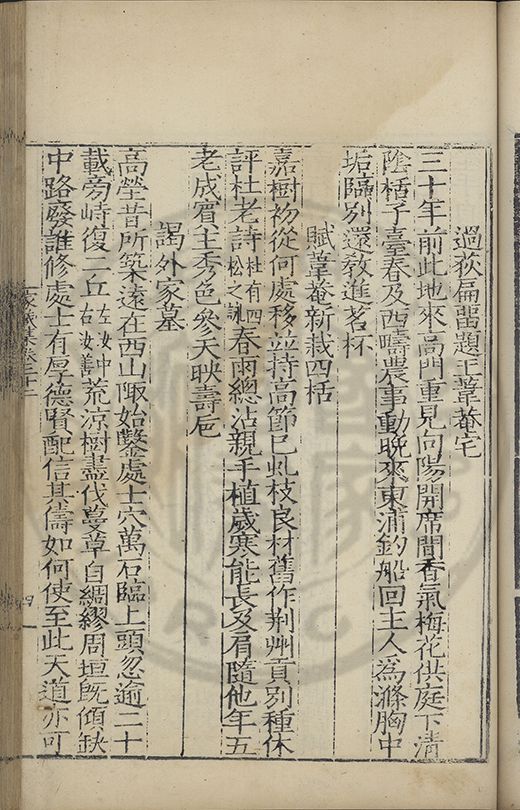 過荻扁留題王葦菴宅
三十年前此地來高門重見向陽開席間香氣梅花供庭下清
陰栝子臺春及西疇農事動晚來東浦釣船回主人為滌胸中
垢臨別還教進茗杯
賦葦菴新栽四栝
嘉樹紛從何處移並持高節已虬枝良材舊作荆州貢別種休
評杜老詩杜有四松之詠春雨總沾親手植歲寒能長及肩隨他年五
老成賓主秀色參天映壽卮
謁外家墓
高塋昔所築遠在西山陬始鑿處士穴萬石臨上頭忽逾二十
載旁峙復二丘左汝中右汝善荒涼樹盡伐蔓草自綢繆周垣旣傾缺
中路廢誰修處士有厚德賢配信其儔如何使至此天道亦可